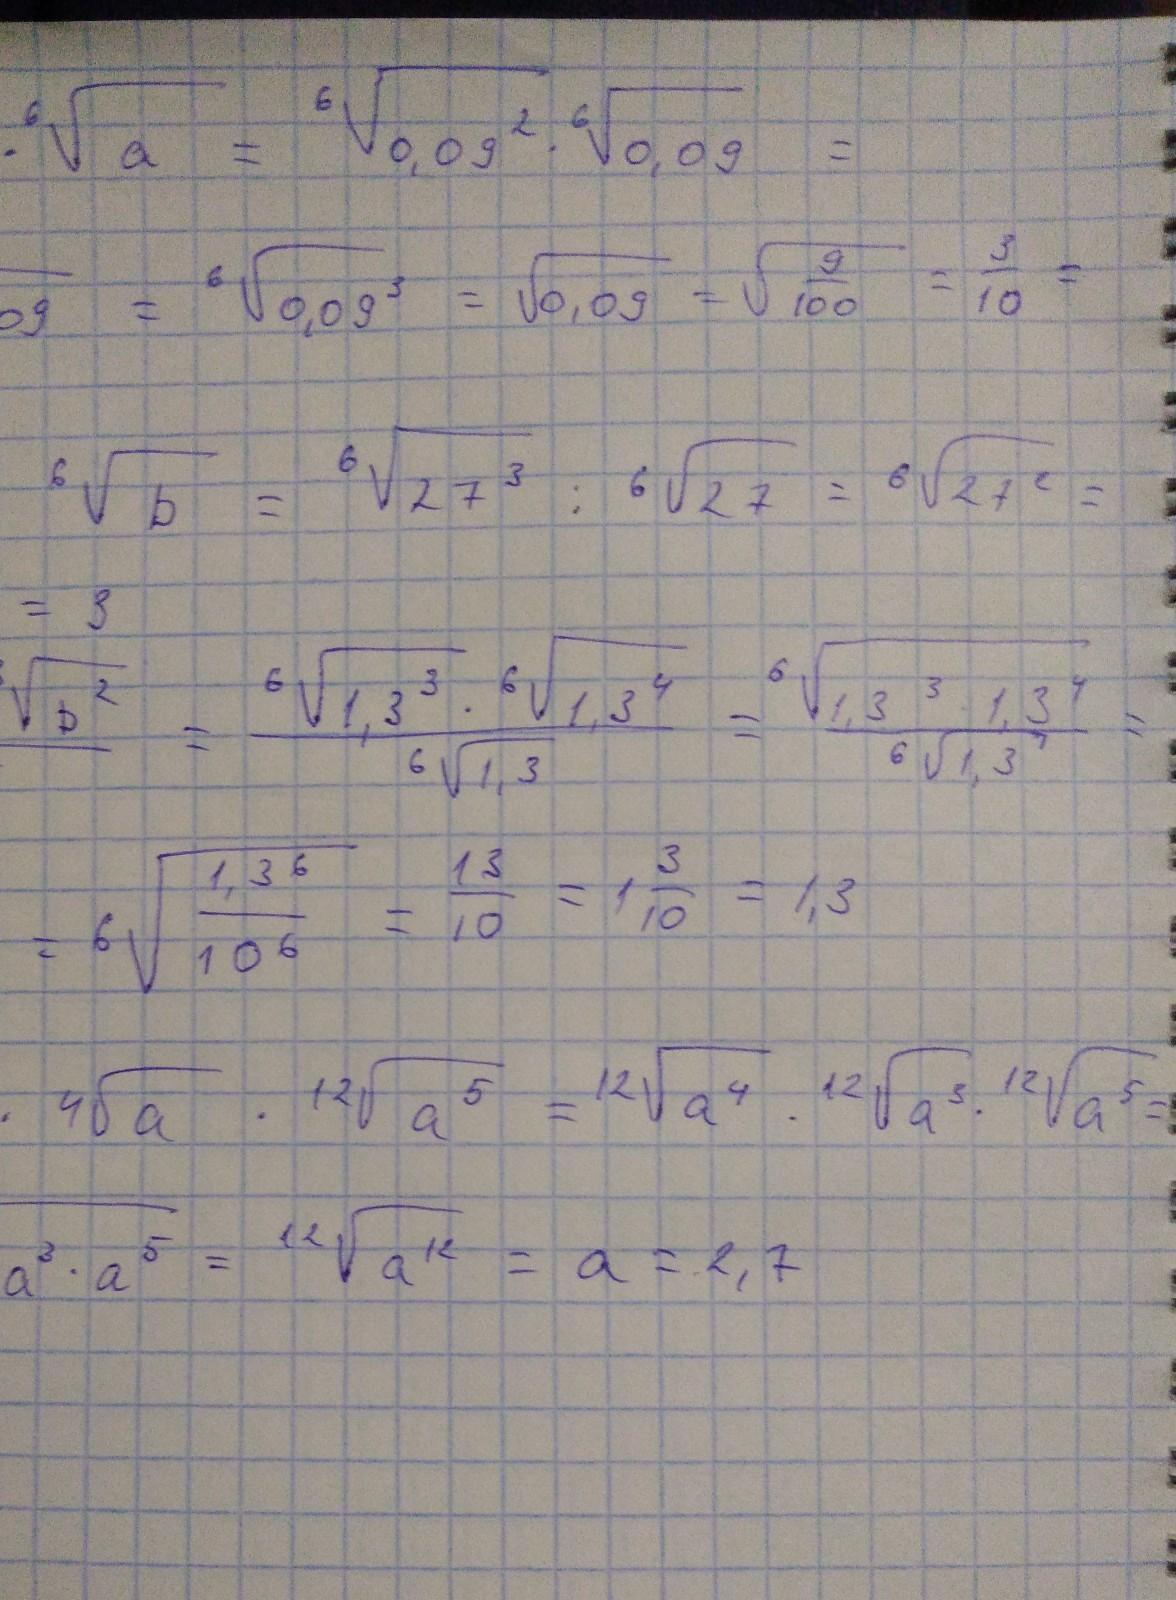 · ⁶√a = ⁶√0,09² · ⁶√0,09 =
09 = ⁶√0,09³ = √0,09 = √(9/100) = 3/10 =
⁶√b = ⁶√27³ : ⁶√27 = ⁶√27² =
= 3
√b² = (⁶√1,3³ · ⁶√1,3⁴)/(⁶√1,3) = (⁶√1,3³ · 1,3⁴)/(⁶√1,3) =
= ⁶√(1,3⁶/10⁶) = 13/10 = 1 3/10 = 1,3
· ⁴√a · ¹²√a⁵ = ¹²√a⁴ · ¹²√a³ · ¹²√a⁵ =
a³ · a⁵ = ¹²√a¹² = a = 2,7